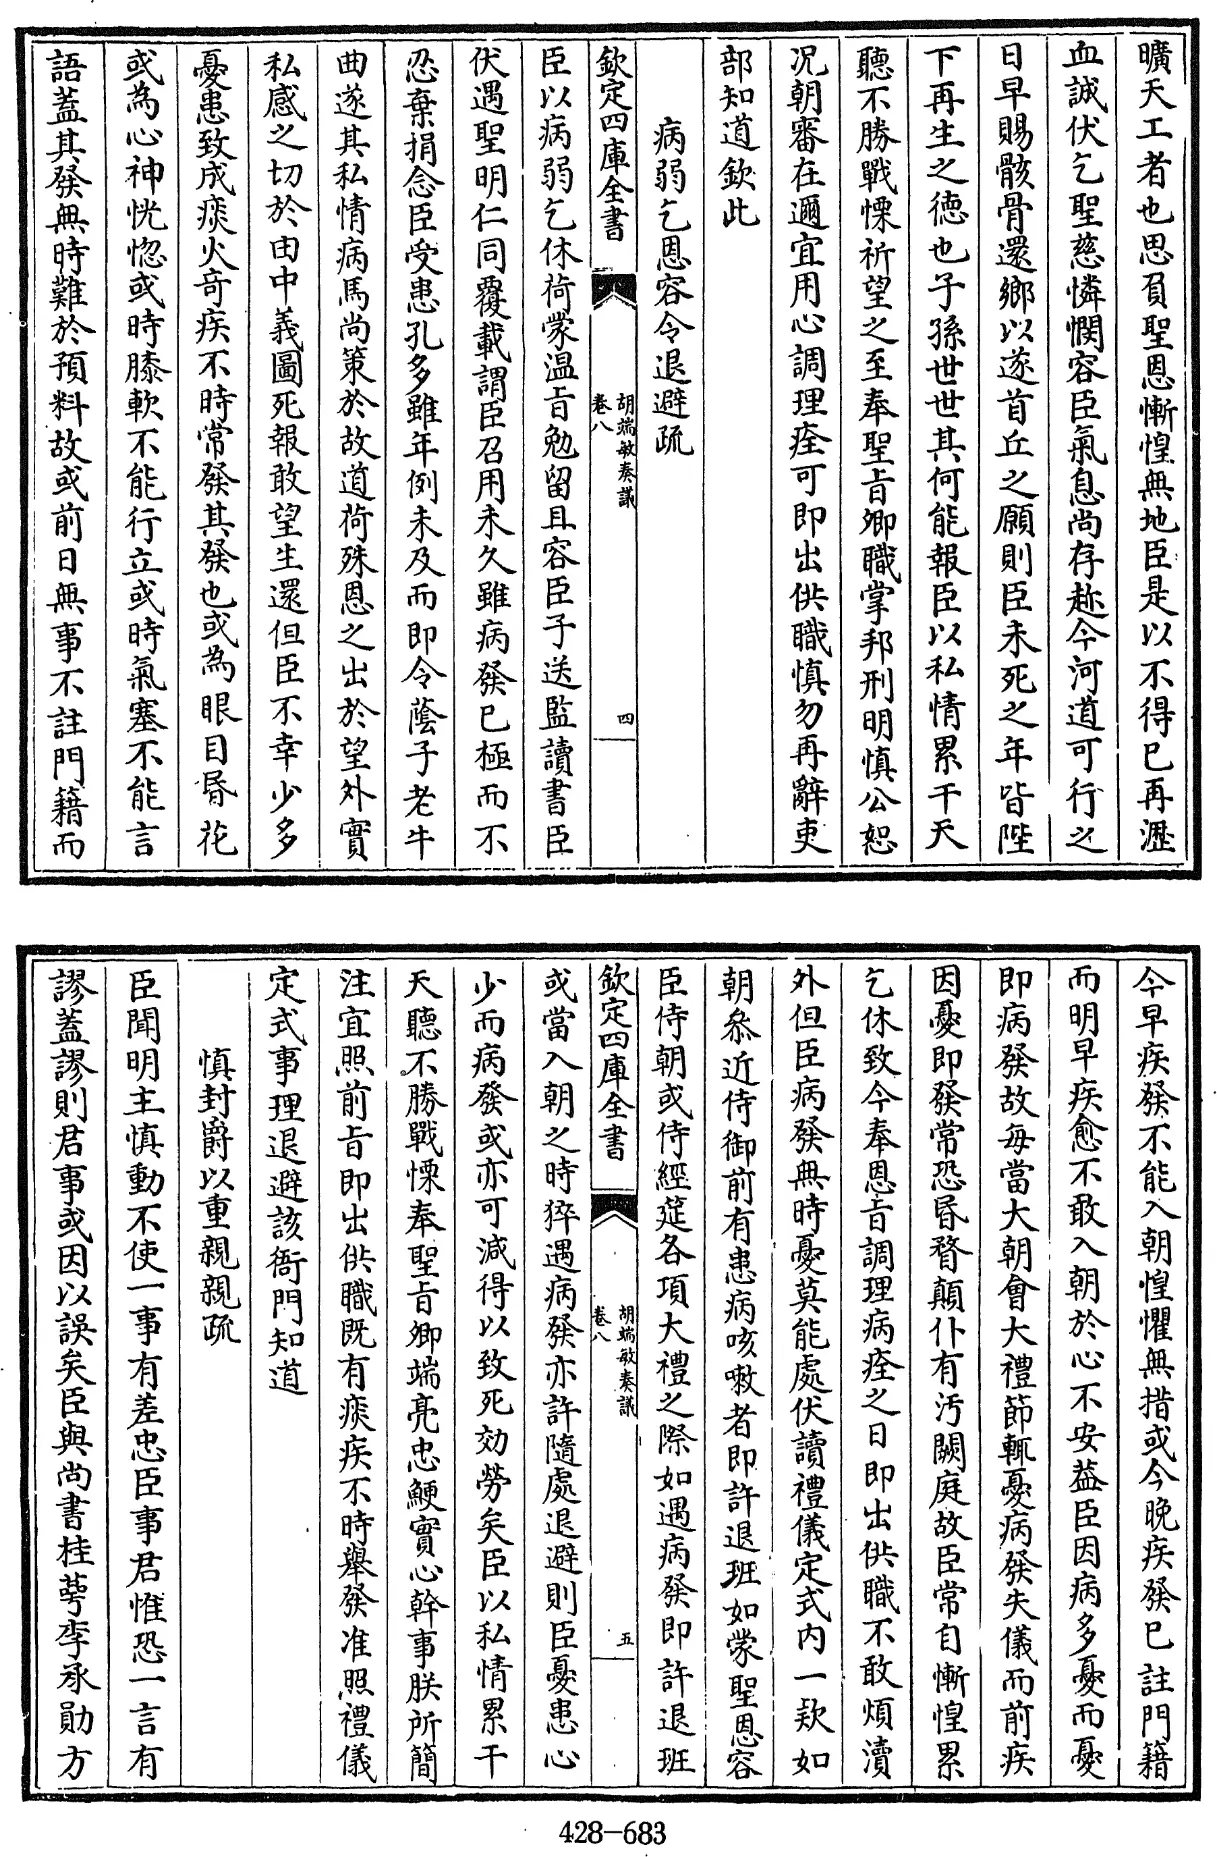 曠天工者也思負聖恩慚惶無地臣是以不得已再瀝
血誠伏乞聖慈憐憫容臣氣息尚存趂今河道可行之
日早賜骸骨還鄉以遂首丘之願則臣未死之年皆陛
下再生之徳也子孫世世其何能報臣以私情累干天
聽不勝戰慄祈望之至奉聖旨卿職掌邦刑明慎公恕
况朝審在邇宜用心調理痊可即出供職慎勿再辭吏
部知道欽此
病弱乞恩容令退避疏
欽定四庫全書
胡端敏奏議
卷八
四
臣以病弱乞休荷蒙温旨勉留且容臣子送監讀書臣
伏遇聖明仁同覆載謂臣召用未久雖病發已極而不
忍棄捐念臣受患孔多雖年例未及而即令蔭子老牛
曲遂其私情病馬尚策於故道荷殊恩之出於望外實
私感之切於由中義圖死報敢望生還但臣不幸少多
憂患致成痰火奇疾不時常發其發也或為眼目昏花
或為心神恍惚或時膝軟不能行立或時氣塞不能言
語蓋其發無時難於預料故或前日無事不註門籍而
今早疾發不能入朝惶懼無措或今晚疾發已註門籍
而明早疾愈不敢入朝於心不安葢臣因病多憂而憂
即病發故每當大朝會大禮節輒憂病發失儀而前疾
因憂即發常恐昏瞀顛仆有汚闕庭故臣常自慚惶累
乞休致今奉恩旨調理病痊之日即出供職不敢煩瀆
外但臣病發無時憂莫能處伏讀禮儀定式内一欵如
朝叅近侍御前有患病咳嗽者即許退班如蒙聖恩容
臣侍朝或侍經筵各項大禮之際如遇病發即許退班
欽定四庫全書
胡端敏奏議
卷八
五
或當入朝之時猝遇病發亦許隨處退避則臣憂患心
少而病發或亦可減得以致死効勞矣臣以私情累干
天聽不勝戰慄奉聖旨卿端亮忠鯁實心幹事朕所簡
注宜照前旨即出供職既有痰疾不時舉發准照禮儀
定式事理退避該衙門知道
慎封爵以重親親疏
臣聞明主慎動不使一事有差忠臣事君惟恐一言有
謬葢謬則君事或因以誤矣臣與尚書桂萼李承勛方
428-683